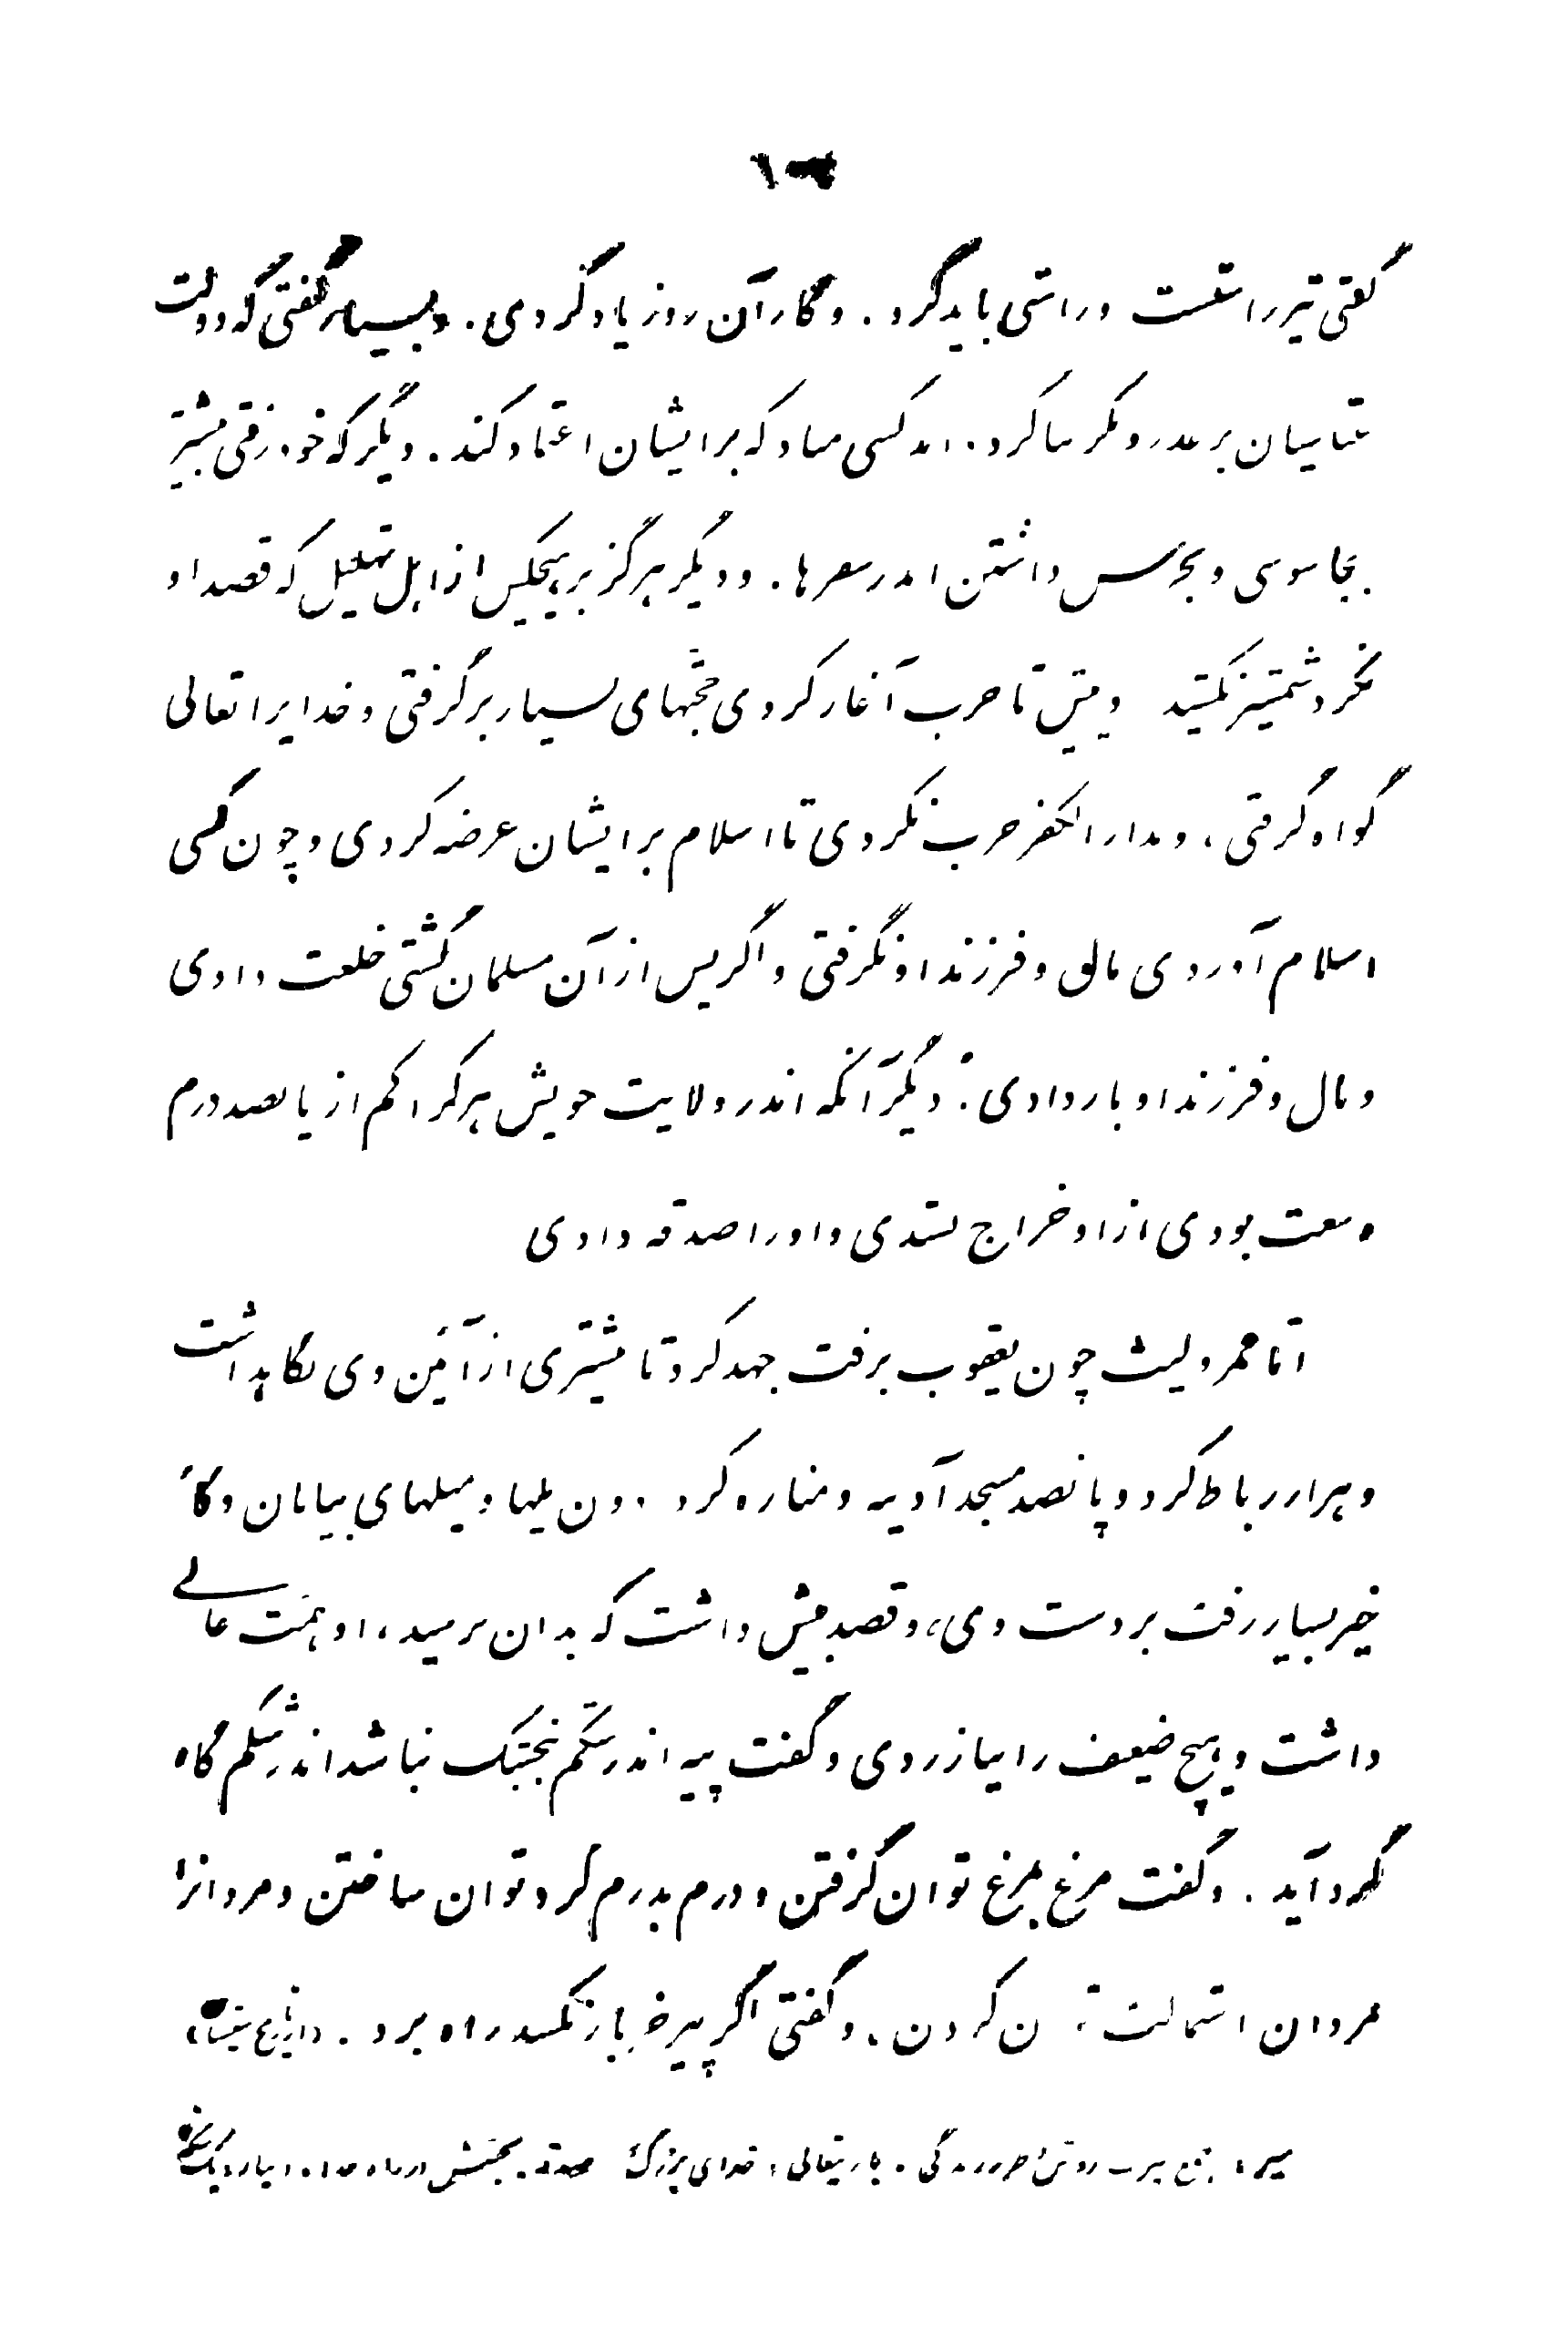 گفتی تیر راشست و راستی باید کرد. و کار آن روز یاد کردی. و بسیار گفتی که دولت
عباسیان بر غدر و مکر بنا کرده اند کسی مباد که بر ایشان اعتماد کند. دیگر که خود رفتی بیشتر
بجاسوسی و بحرس داشتن اندر سفرها. و دیگر هرگز بر هیچکس از اهل تهلیل که قصد او
نکرد شمشیر نکشید و پیش تا حرب آغاز کردی حجّتهای بسیار برگرفتی و خدایرا تعالی
گواه گرفتی، و بدار الکفر حرب نکردی تا اسلام بر ایشان عرضه کردی و چون کسی
اسلام آوردی مال و فرزند او نگرفتی و اگر پس از آن مسلمان گشتی خلعت دادی
و مال و فرزند او باز دادی. دیگر آنکه اندر ولایت خویش هر کرا کم از پانصد درم
وسعت بودی از او خراج نستدی و او را صدقه دادی
امّا عمرو لیث چون یعقوب برفت جهد کرد تا بیشتری از آئین وی نگاهداشت
و هزار رباط کرد و پانصد مسجد آدینه و مناره کرد دون پلها و میلهای بیابان و کار
خیر بسیار رفت بر دست وی، و قصد بیش داشت که بدان نرسید، و همّت عالی
داشت و هیچ ضعیف را نیازردی و گفت پیه اندر شکم بنجشک نباشد اندر شکم گاو
گرد آید. و گفت مرغ بمرغ توان گرفتن و درم بدرم گرد توان ساختن و مردانرا
بمردان استمالت توان کردن. و گفتی اگر پیر خر بار نکشد راه برد. (از تاریخ سیستان)
سیر، جمع سیرت روش باریتعالی، خدای بزرگ صدقه. بخشش در راه خدا.